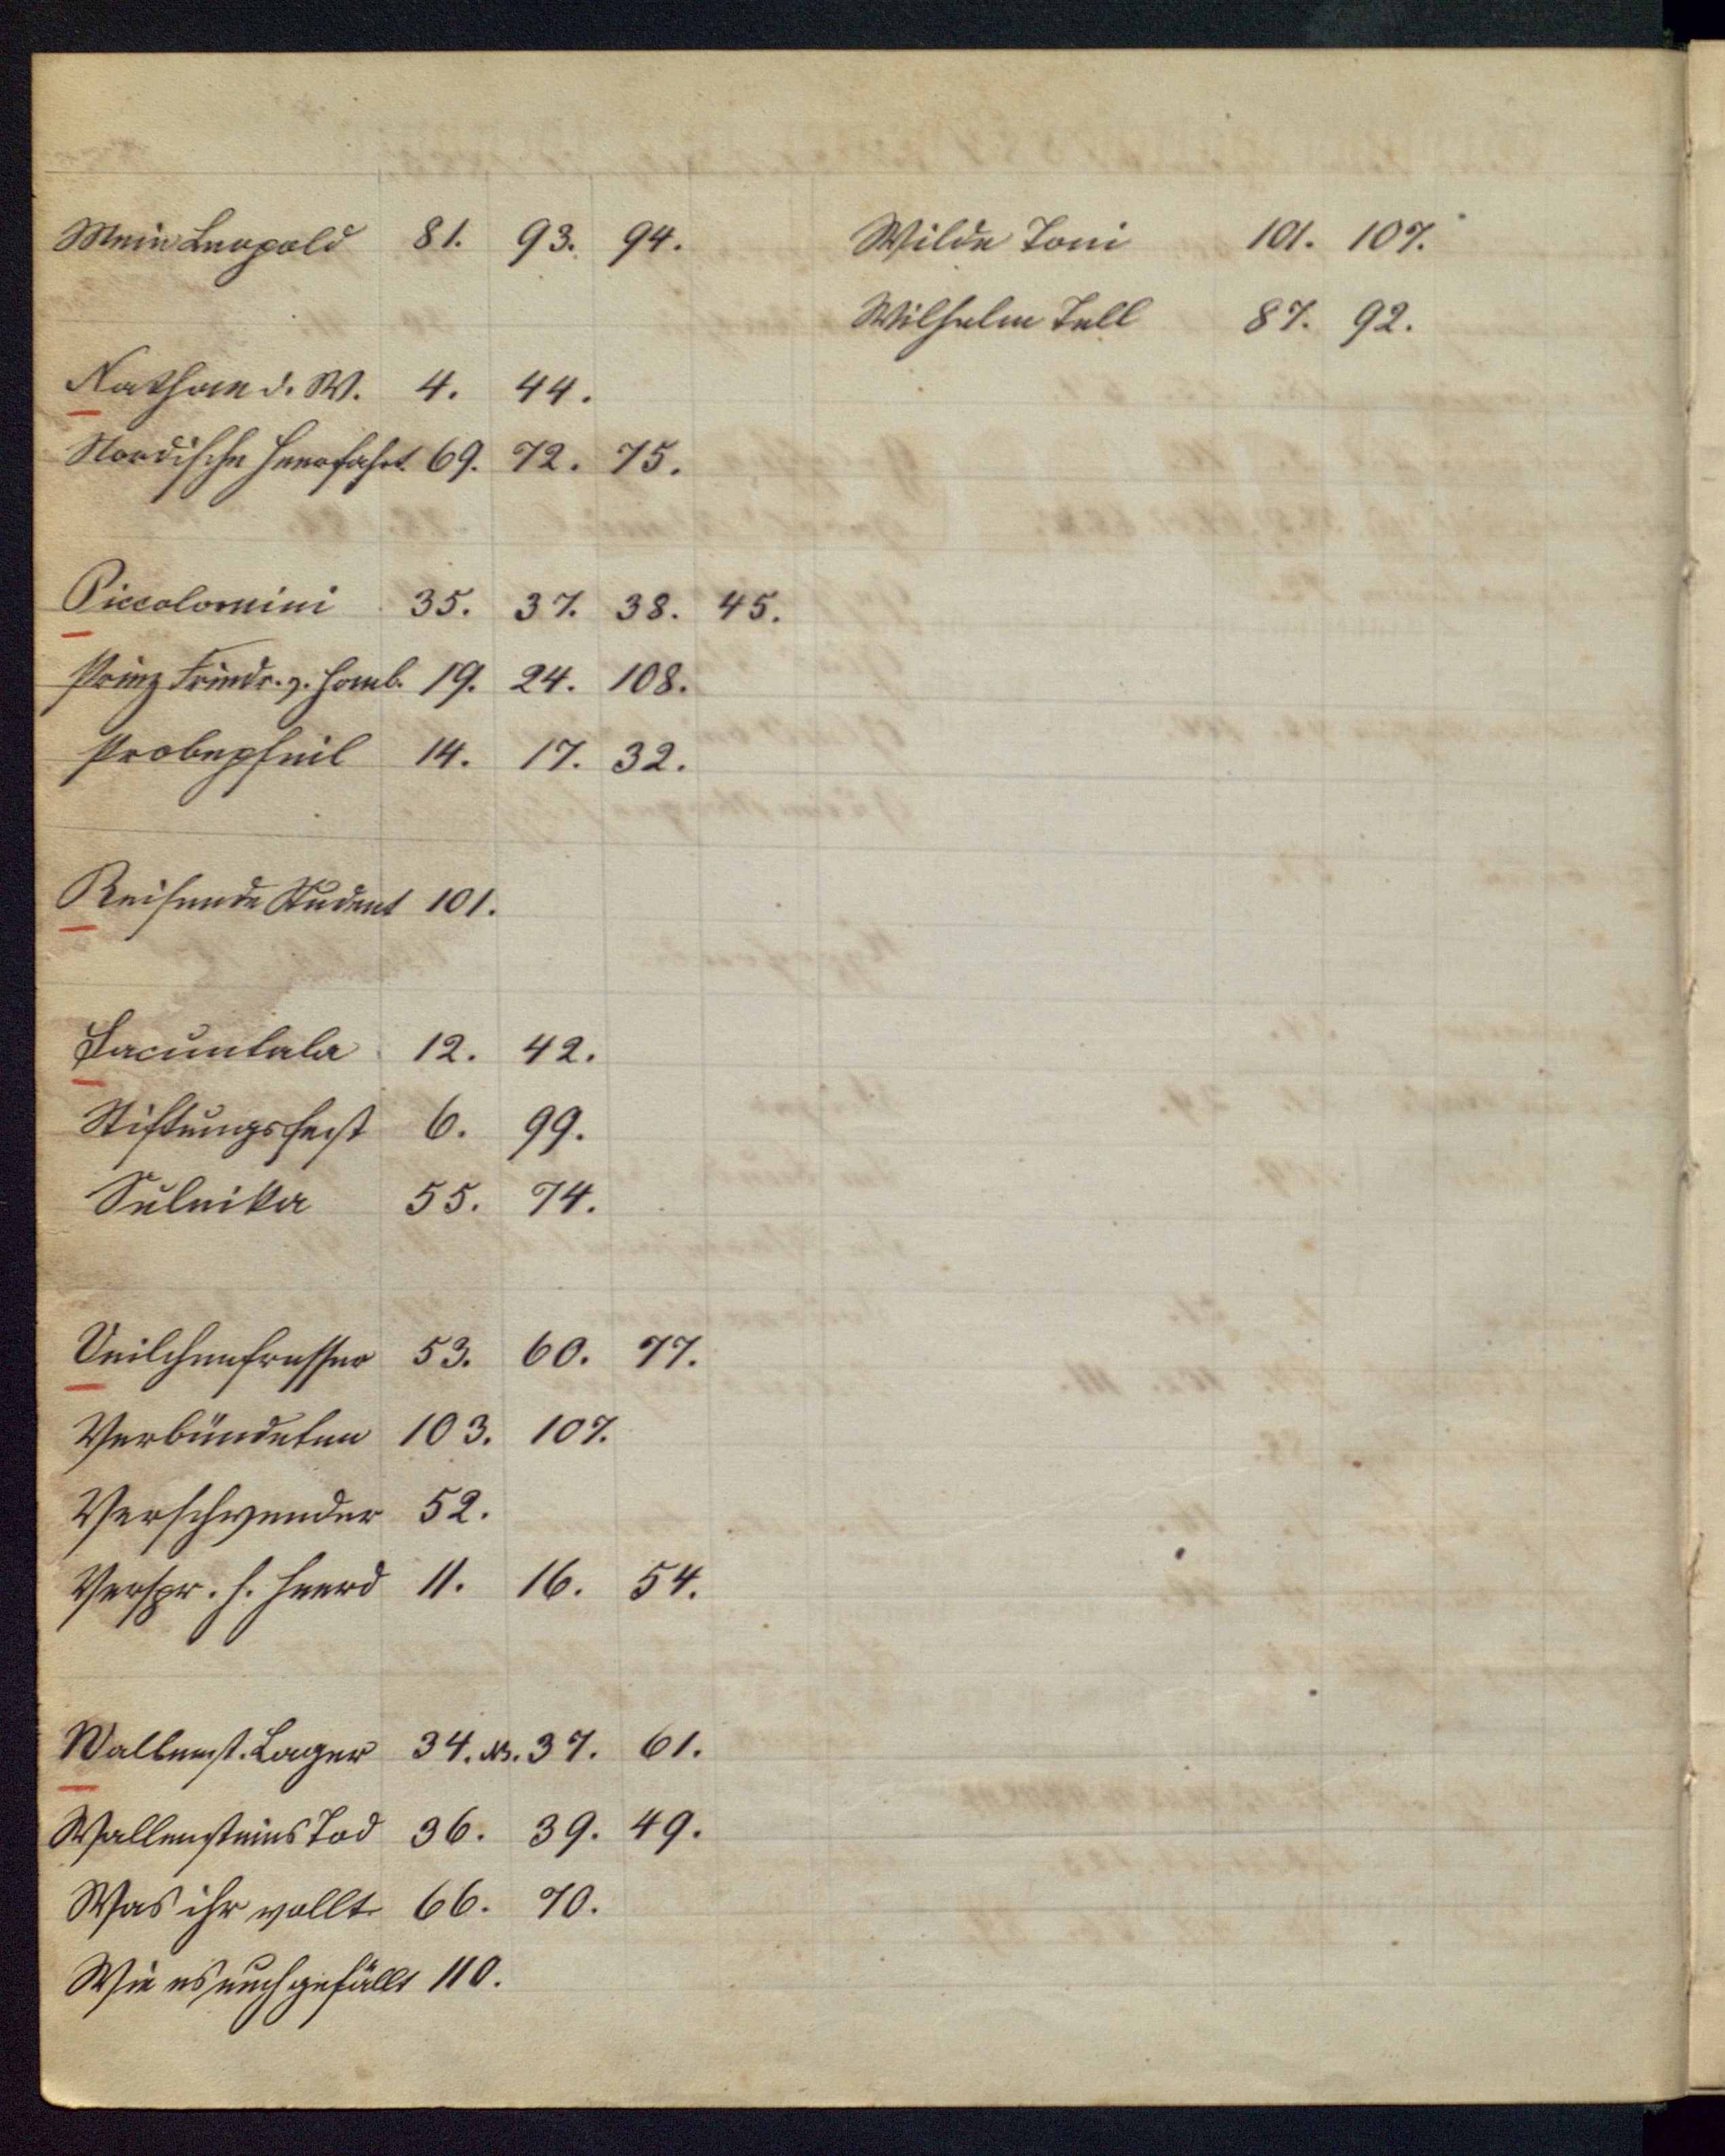 Mein Leopold 81. 93. 94.
Nathan d. W. 4. 44.
Nordische Heerfahrt 69. 72. 75.
Piccolomini 35. 37. 38. 45.
Prinz Friedr. v. Homb. 19. 24. 108.
Probepfeil 14. 17. 32.
Reisende Student 101.
Sacuntala 12. 42.
Stiftungsfest 6. 99.
Suleika 55. 74.
Veilchenfresser 53. 60. 77.
Verbündeten 103. 107.
Verschwender 52.
Verspr. h. Heerd 11. 16. 54.
Wallenst. Lager 34. N3. 37. 61.
Wallensteins Tod 36. 39. 49.
Was ihr wollt 66. 70.
Wie es euch gefällt 110.
Wilde Toni 101. 107.
Wilhelm Tell 87. 92.